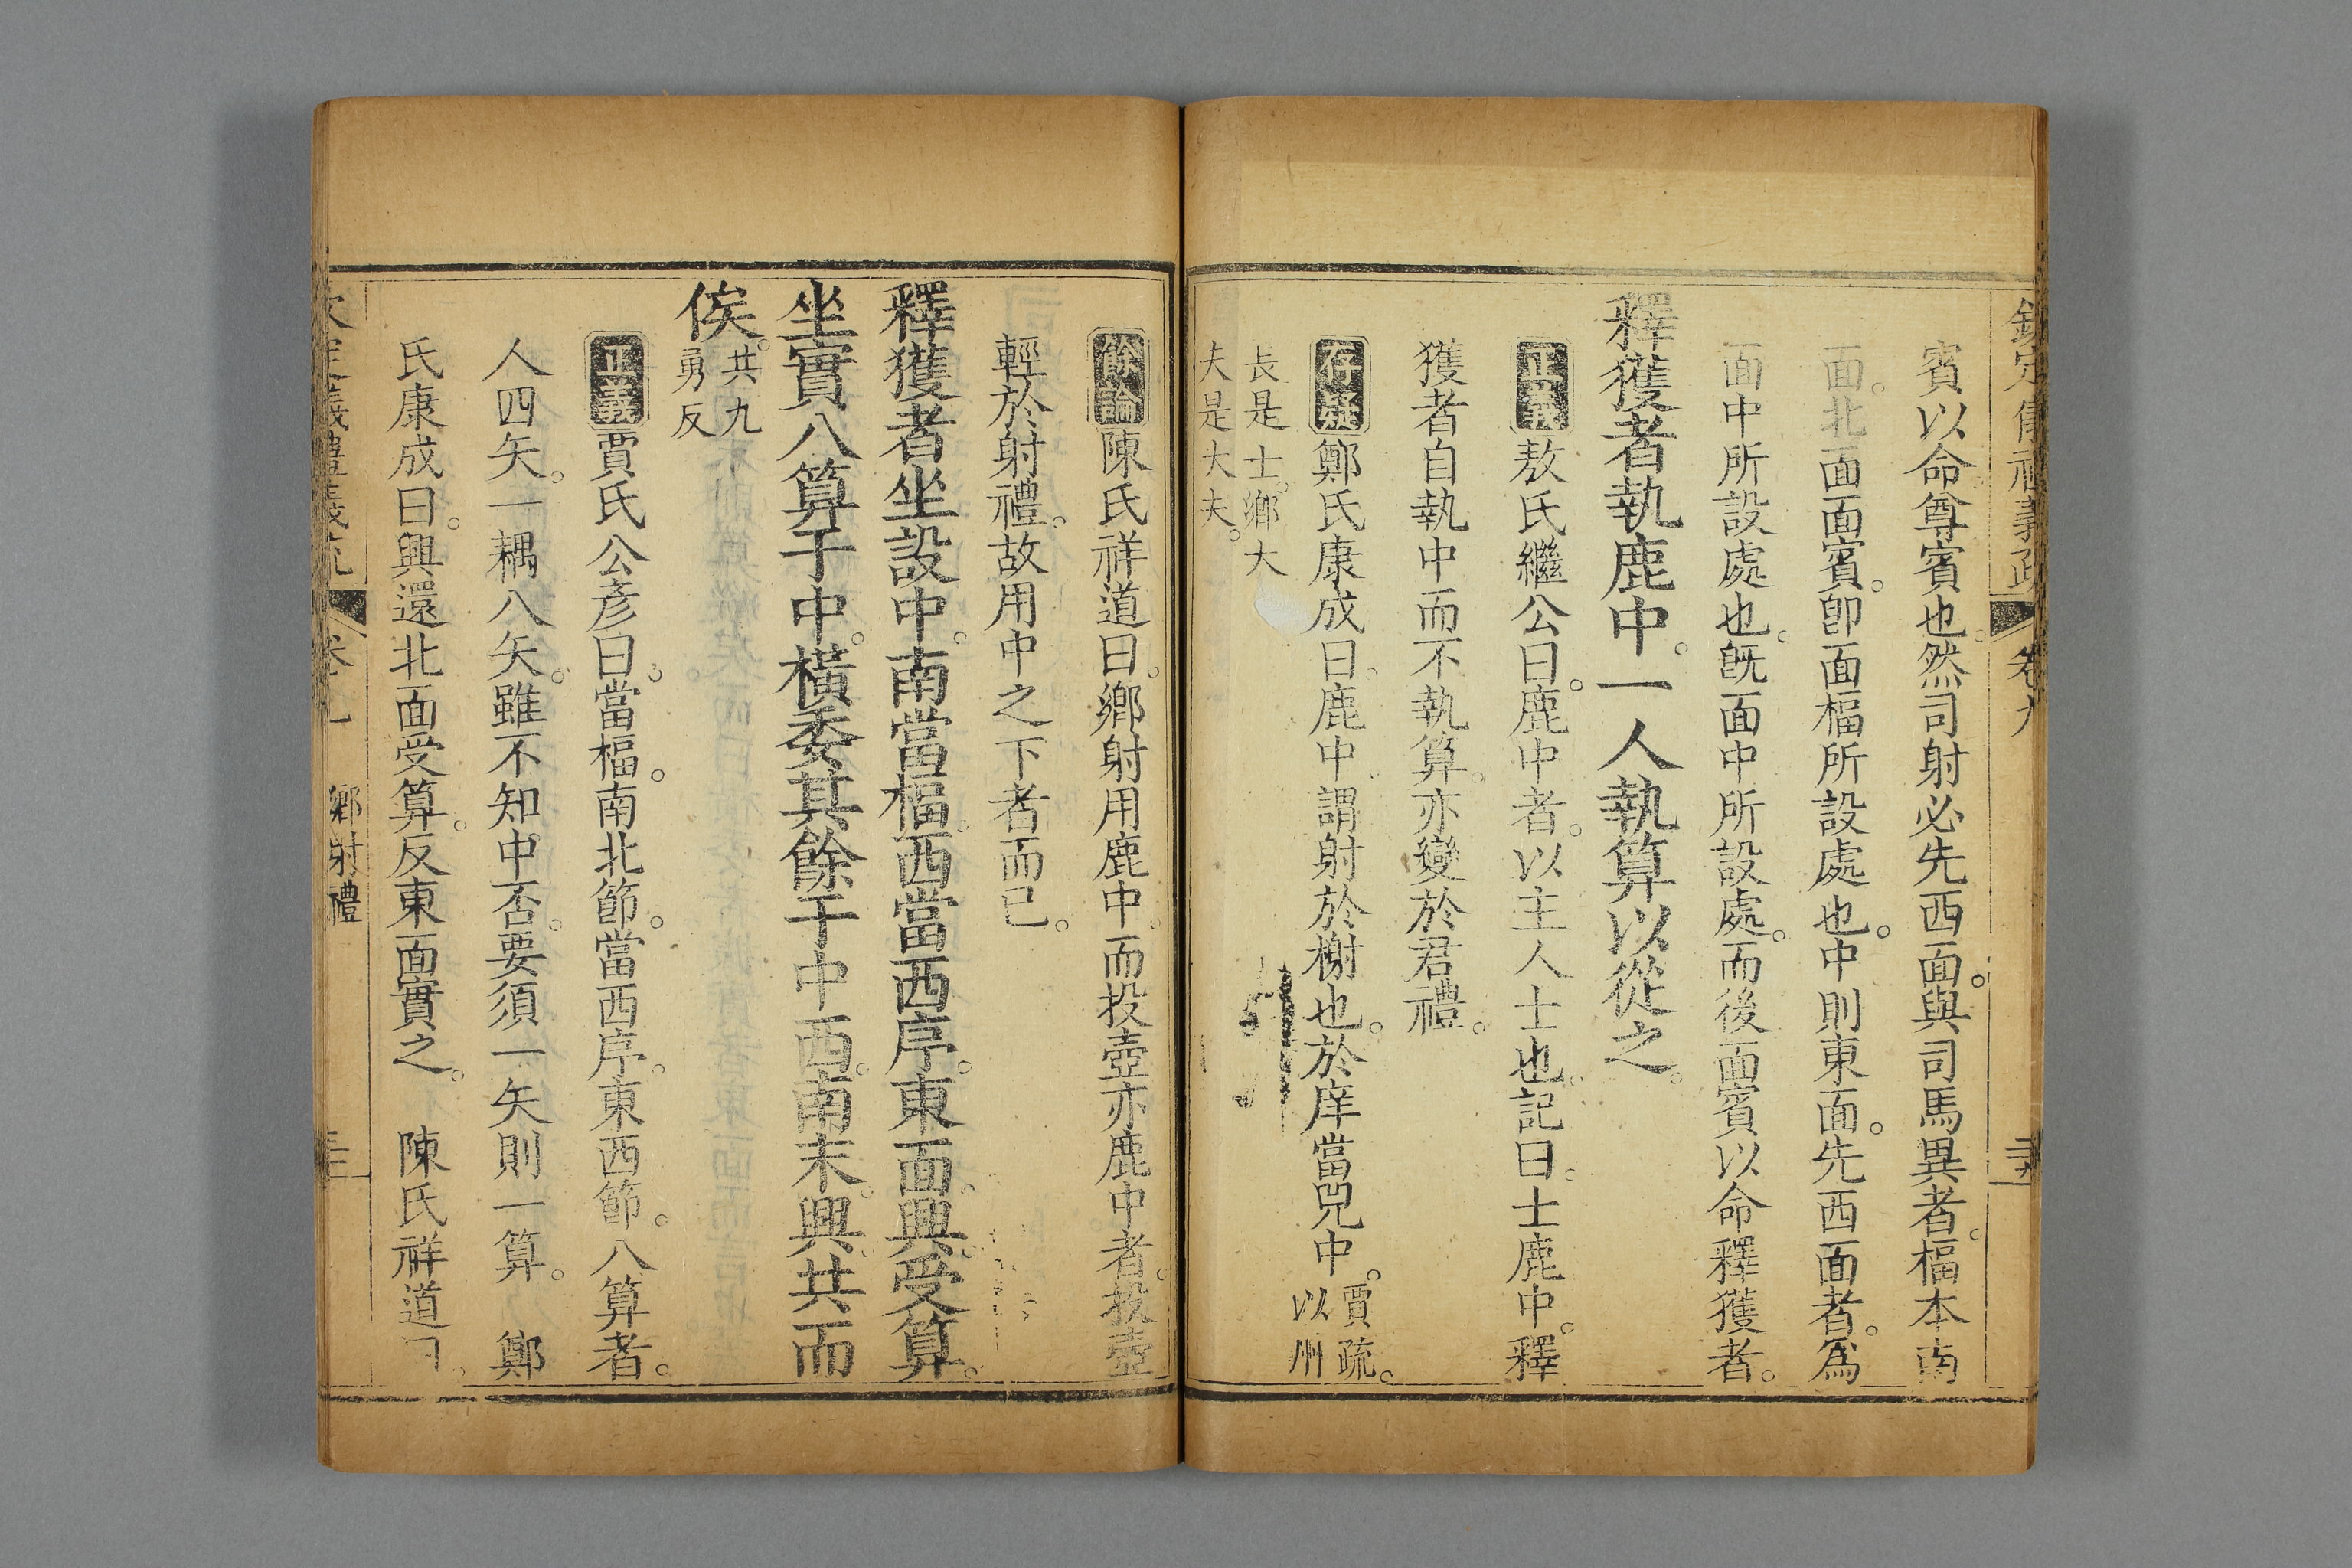 欽定儀禮義疏 卷九
賓以命尊賓也。然司射必先西面。與司馬異者。楅本南
面。北面面賓。卽面楅所設處也。中則東面。先西面者。爲
面中所設處也。旣面中所設處。而後面賓以命釋獲者。
釋獲者執鹿中。一人執算以從之。
正義敖氏繼公曰。鹿中者。以主人士也。記曰。士鹿中。釋
獲者自執中而不執算。亦變於君禮。
存疑鄭氏康成曰。鹿中。謂射於榭也。於庠當兕中。賈疏。以州
長是士。鄉大
夫是大夫。
餘論陳氏祥道曰。鄉射用鹿中。而投壺亦鹿中者。投壺
輕於射禮。故用中之下者而已。
釋獲者坐設中。南當楅。西當西序。東面。興。受算。
坐實八算于中。橫委其餘于中西。南末。興。共而
俟。共九
勇反
正義賈氏公彥曰。當楅。南北節。當西序。東西節。八算者。
人四矢。一耦八矢。雖不知中否。要須一矢則一算。 鄭
氏康成曰。興還北面受算。反東面實之。 陳氏祥道曰。
欽定儀禮義疏 卷 鄉射禮